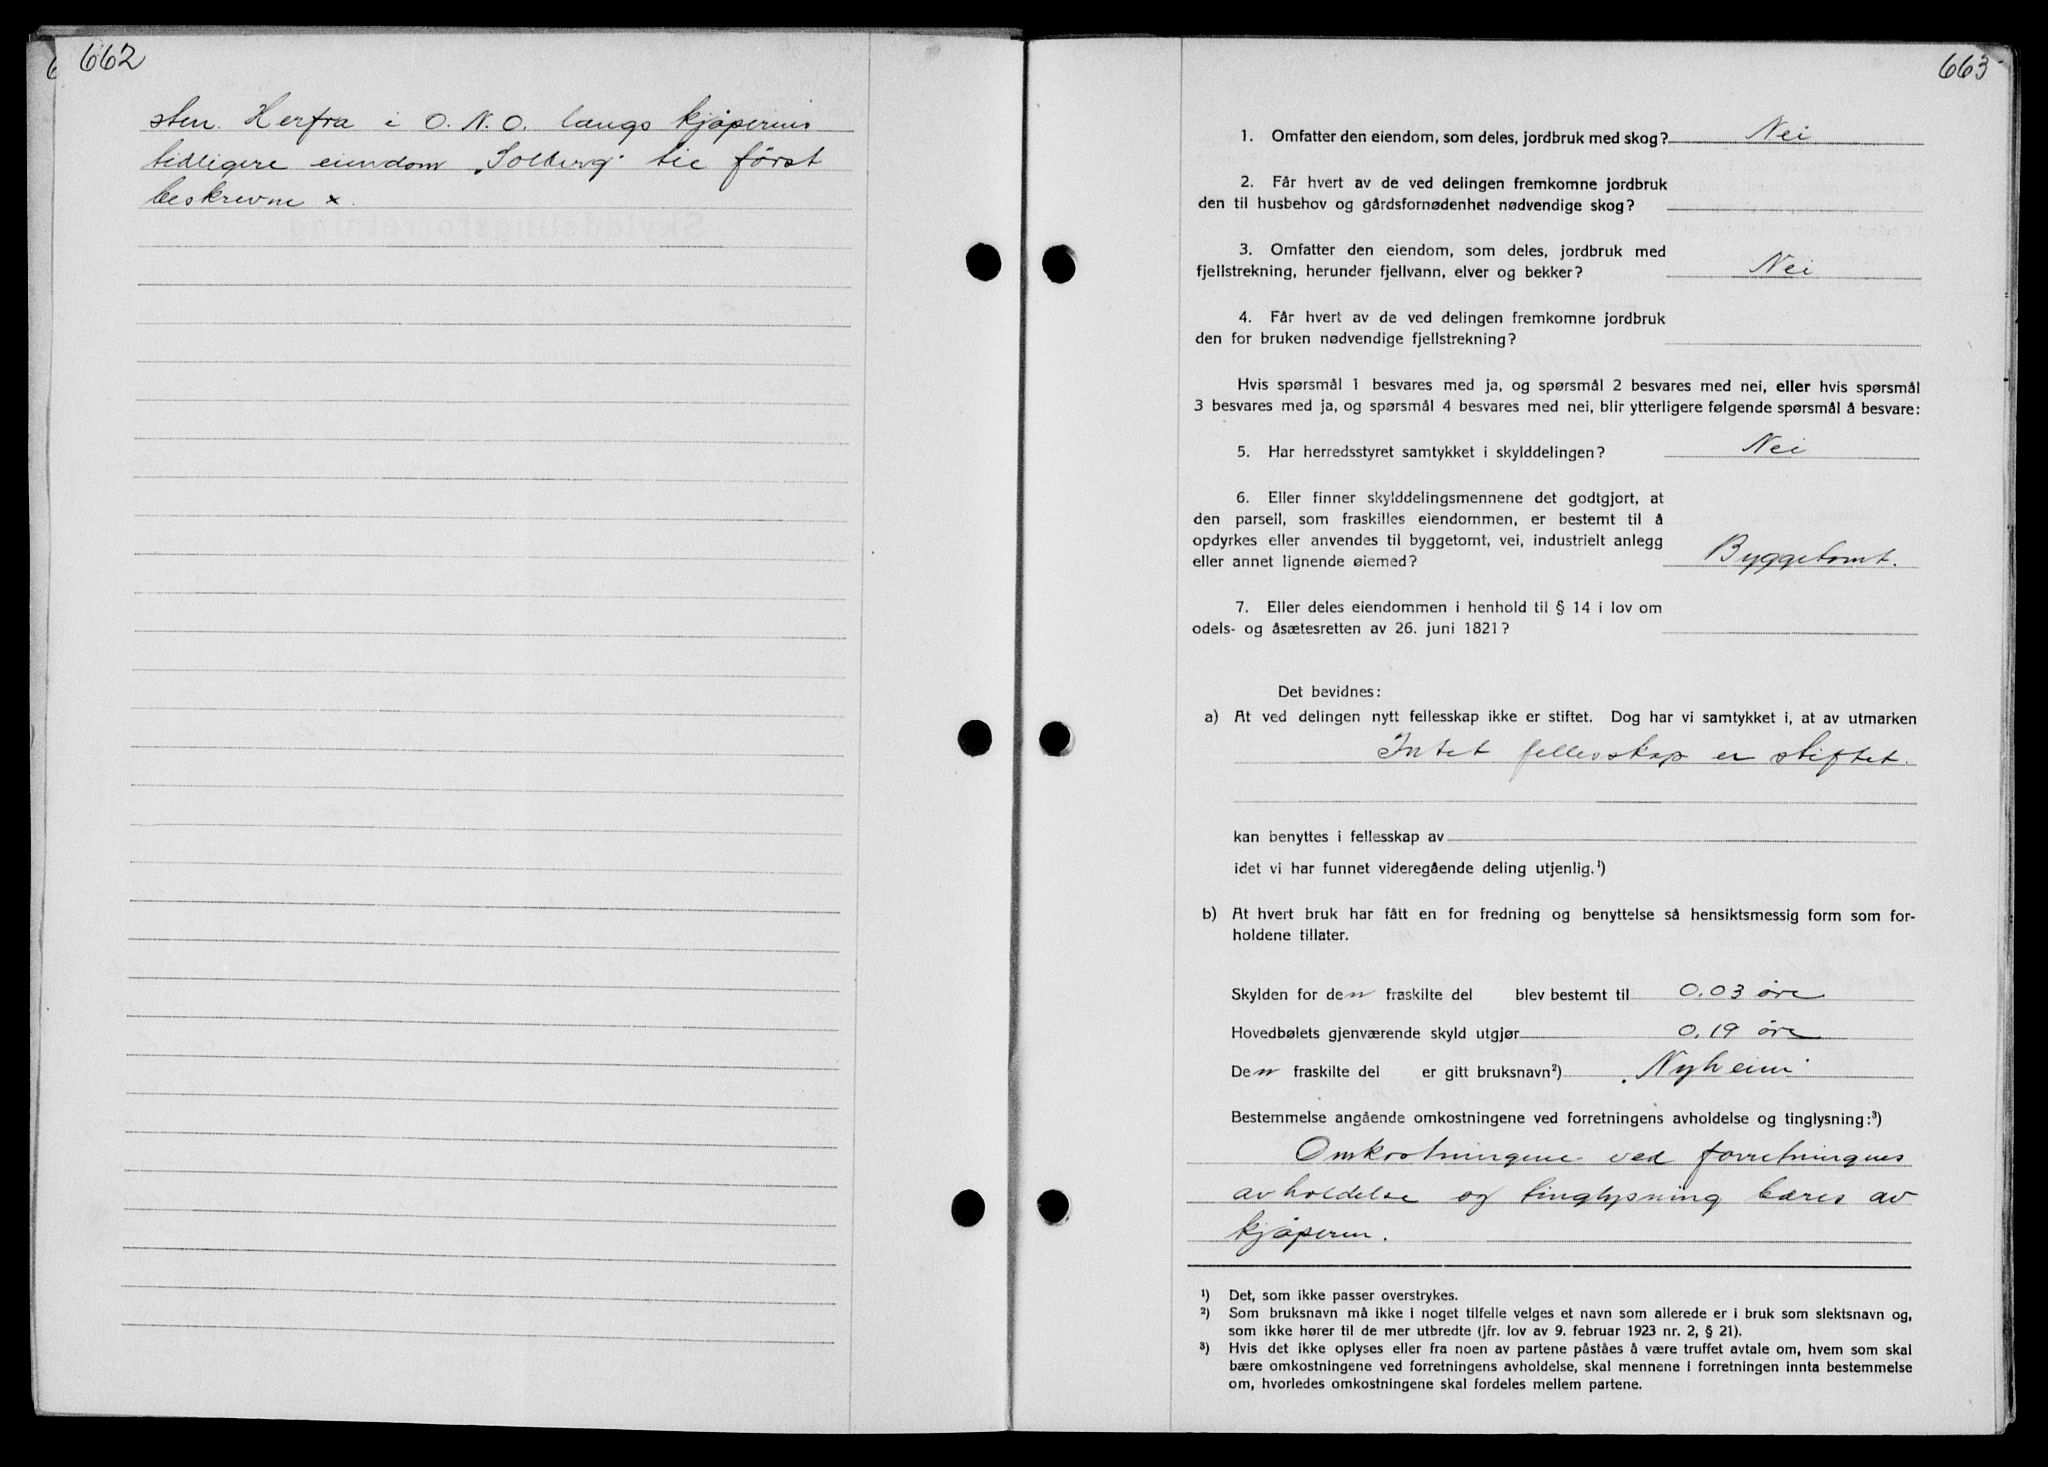 662
sten. Herfra i O. N. O. langs kjøperens
tidligere eiendom "Solberg" til først
beskrevne x.
663
1. Omfatter den eiendom, som deles, jordbruk med skog? Nei
2. Får hvert av de ved delingen fremkomne jordbruk
den til husbehov og gårdsfornødenhet nødvendige skog?
3. Omfatter den eiendom, som deles, jordbruk med
fjellstrekning, herunder fjellvann, elver og bekker? Nei
4. Får hvert av de ved delingen fremkomne jordbruk
den for bruken nødvendige fjellstrekning?
Hvis spørsmål 1 besvares med ja, og spørsmål 2 besvares med nei, eller hvis spørsmål
3 besvares med ja, og spørsmål 4 besvares med nei, blir ytterligere følgende spørsmål å besvare:
5. Har herredsstyret samtykket i skylddelingen? Nei
6. Eller finner skylddelingsmennene det godtgjort, at
den parsell, som fraskilles eiendommen, er bestemt til å
opdyrkes eller anvendes til byggetomt, vei, industrielt anlegg
eller annet lignende øiemed? Byggetomt.
7. Eller deles eiendommen i henhold til § 14 i lov om
odels- og åsætesretten av 26. juni 1821?
Det bevidnes:
a) At ved delingen nytt fellesskap ikke er stiftet. Dog har vi samtykket i, at av utmarken
Intet fellesskap er stiftet.
kan benyttes i fellesskap av
idet vi har funnet videregående deling utjenlig.¹)
b) At hvert bruk har fått en for fredning og benyttelse så hensiktsmessig form som for-
holdene tillater.
Skylden for den fraskilte del blev bestemt til 0.03 øre
Hovedbølets gjenværende skyld utgjør 0.19 øre
Den fraskilte del er gitt bruksnavn²) "Nyheim"
Bestemmelse angående omkostningene ved forretningens avholdelse og tinglysning:³)
Omkostningene ved forretningens
avholdelse og tinglysning bæres av
kjøperen.
¹) Det, som ikke passer overstrykes.
²) Som bruksnavn må ikke i noget tilfelle velges et navn som allerede er i bruk som slektsnavn og,
som ikke hører til de mer utbredte (jfr. lov av 9. februar 1923 nr. 2, § 21).
³) Hvis det ikke oplyses eller fra noen av partene påståes å være truffet avtale om, hvem som skal
bære omkostningene ved forretningens avholdelse, skal mennene i forretningen innta bestemmelse
om, hvorledes omkostningene skal fordeles mellem partene.